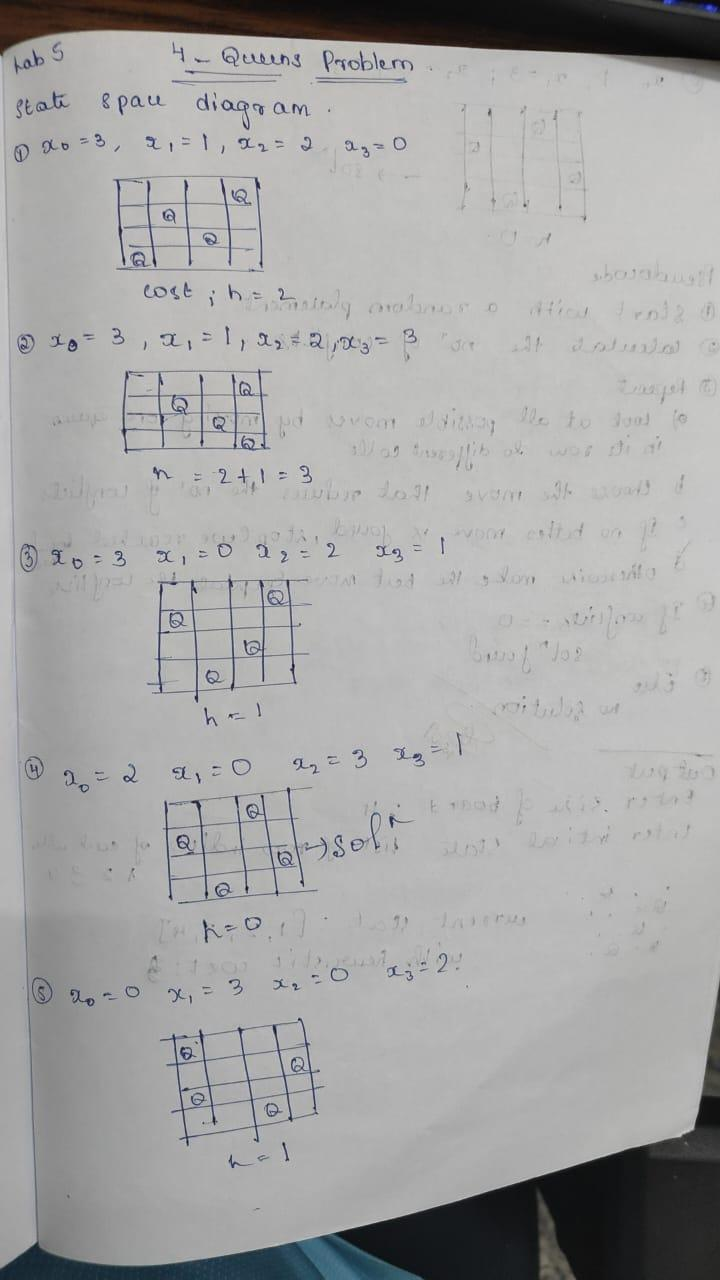 Lab 5
4 - Queens Problem.
State space diagram.
① x₀ = 3, x₁ = 1, x₂ = 2 x₃ = 0
Q
Q
Q
Q
cost ; h = 2
② x₀ = 3, x₁ = 1, x₂ = 2, x₃ = 3
Q
Q
Q
Q
h = 2 + 1 = 3
③ x₀ = 3 x₁ = 0 x₂ = 2 x₃ = 1
Q
Q
Q
Q
h = 1
④ x₀ = 2 x₁ = 0 x₂ = 3 x₃ = 1
Q
Q
Q → Solⁿ
Q
h = 0
⑤ x₀ = 0 x₁ = 3 x₂ = 0 x₃ = 2
Q
Q
Q
Q
h = 1